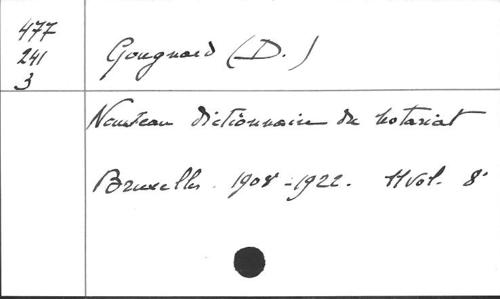 477
241
3
Gougnard (D.)
Nouveau dictionnaire du notariat
Bruxelles. 1908-1922. 11 vol. 8°